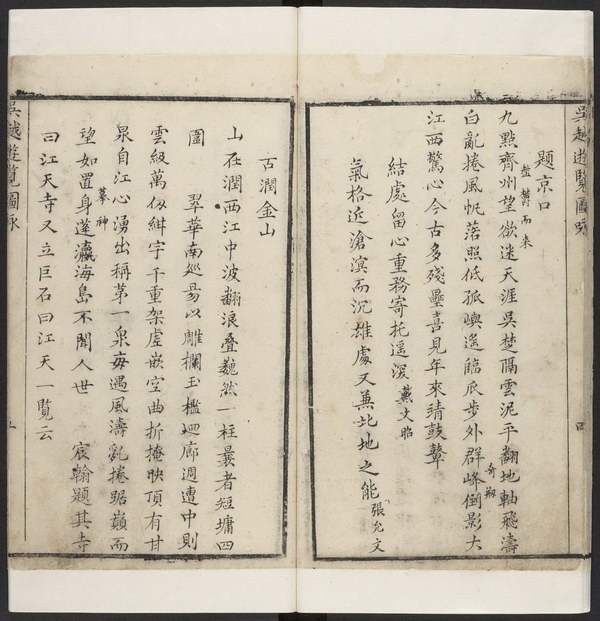 吳越遊覽圖咏
四
題京口
盤鬱而來
九點齊州望欲迷天涯吳楚隔雲泥平翻地軸飛濤
白亂捲風帆落照低孤嶼遙臨瓜步外群峰倒影大
江西驚心今古多殘壘喜見年來靖鼓鼙
結處留心重務寄托遥深 戴文昭
氣格近滄溟而沉雄處又兼北地之能 張允文
古潤金山
山在潤西江中波翻浪疊巍然一柱曩者短墉四
圍 翠華南廵易以雕欄玉檻迴廊週遭中則
雲級萬仭紺宇千重架虛嵌空曲折掩映頂有甘
泉自江心湧出稱第一泉每遇風濤亂捲踞巔而
摹神
望如置身蓬瀛海島不聞人世 宸翰題其寺
曰江天寺又立巨石曰江天一覽云
吳越遊覽圖咏